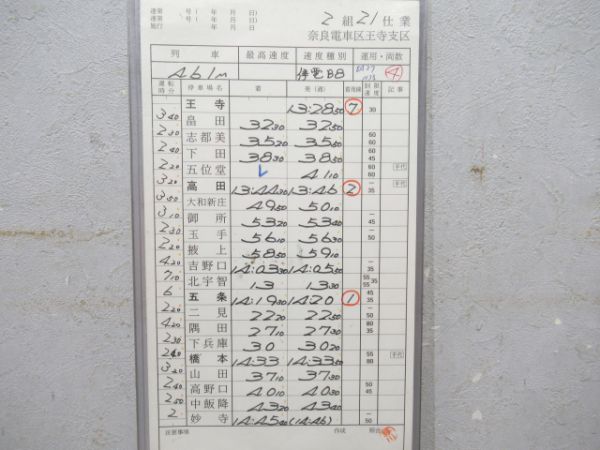 達第 号( 年 月 日)
達第 号( 年 月 日)
施行 年 月 日
2組21仕業
奈良電車区王寺支区
列車 最高速度 速度種別 運用・両数
461M 停電B8 ④
運転時分 停車場名 着 発(通) 着発線 制限速度 記事
王寺 13:28 50 ⑦ 30
3 40
畠田 32 30 32 50
2 30
志都美 35 20 35 50 60
2 40
下田 38 30 38 50 60 45
2 20
五位堂 レ 41 10 60 60
3 20
高田 13:44 30 13:46 ② 35
3 50
大和新庄 49 50 50 10
3 10
御所 53 20 53 40 45
2 30
玉手 56 10 56 30 50
2 20
掖上 58 50 59 10
4 20
吉野口 14:03 30 14:05 50 35
7 10
北宇智 13 13 30 55 55 35
6
五条 14:19 30 14:20 ① 45 35
2 20
二見 22 20 22 50 50
4 20
隅田 27 10 27 30 80 35
2 30
下兵庫 30 30 20
2 40
橋本 14:33 14:33 50 55 80
3 20
山田 37 10 37 30
2 40
高野口 40 10 40 30 50 45
2 50
中飯降 43 20 43 40
2
妙寺 14:45 40 (14:46) 50
注意事項 作成